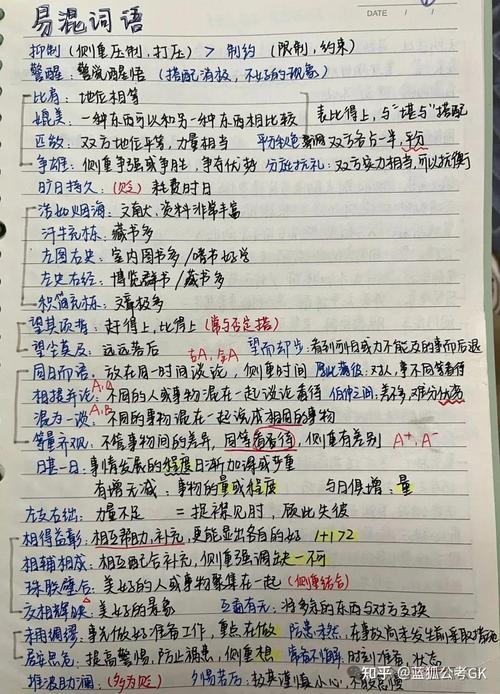 易混词语
DATE
抑制(侧重压制,打压) > 制约 (限制,约束)
警醒:警戒醒悟 (搭配消极,不好的现象)
比肩:地位相等
媲美:一种东西可以和另一种东西相比较 表比得上,与"堪与"搭配
匹敌:双方地位平等,力量相当 平分秋色:双方各占一半,平局
争雄:侧重争强或争胜,争夺优势 分庭抗礼:双方实力相当,可以抗衡
旷日持久:(贬) 耗费时日
浩如烟海:文献大、资料非常丰富
汗牛充栋:藏书多
左图右史:室内图书多/嗜书好学
左史右经:博览群书/藏书多
积简充栋:文章极多
望其项背:赶得上,比得上(常与否定搭)
望尘莫及:远远落后 望而却步:看到所困或力不能及的事而后退
同日而语:放在同一时间谈论,侧重时间 厚此薄彼:对人、事不同等看待
相提并论:不同的人或事物混在一起谈论看待 伯仲之间:差不多,难分优劣
混为一谈:不同的事物混在一起说成相同的事物
等量齐观:不管事物间的差异,同等看待,侧重有差别 A+,A-
日甚一日:事情发展的程度日渐加深或严重
有增无减:事物的量或程度 与日俱增:量
左支右绌:力量不足 = 捉襟见肘,顾此失彼
相得益彰:相互帮助、补充,更能显出各自的好 1+1>2
相辅相成:相互配合补充,侧重强调缺一不可
珠联璧合:美好的人或事物聚集在一起(侧重结合)
交相辉映:美好的景象 互通有无:将多余的东西与对方交换
未雨绸缪:事先做好准备工作,重点在做 防患未然:在事故尚未发生前采取措施
居安思危:提高警惕,防止祸患,侧重想
推波助澜:(多为贬)
知乎 @蓝狐公考GK